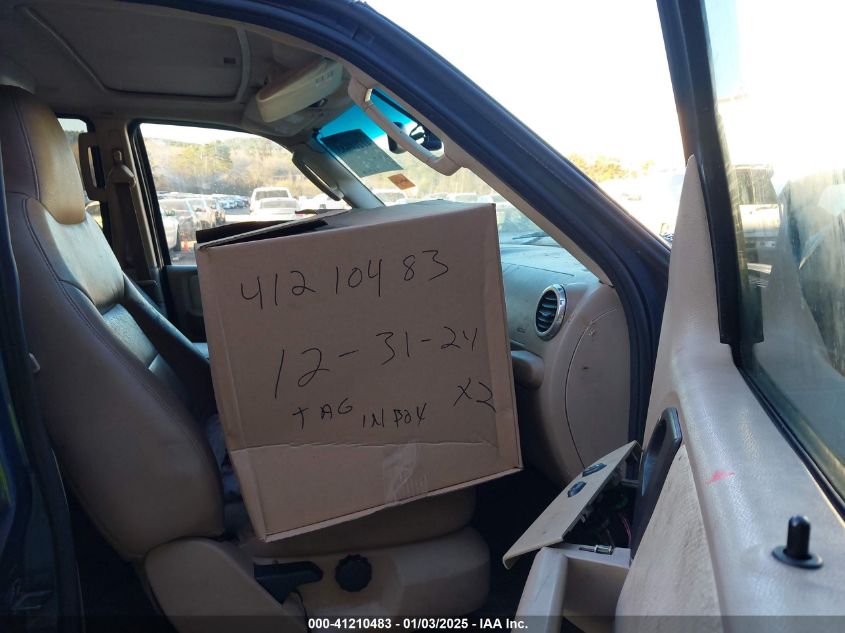 41210483
12-31-24
TAG IN BOX X2
000-41210483 - 01/03/2025 - IAA Inc.